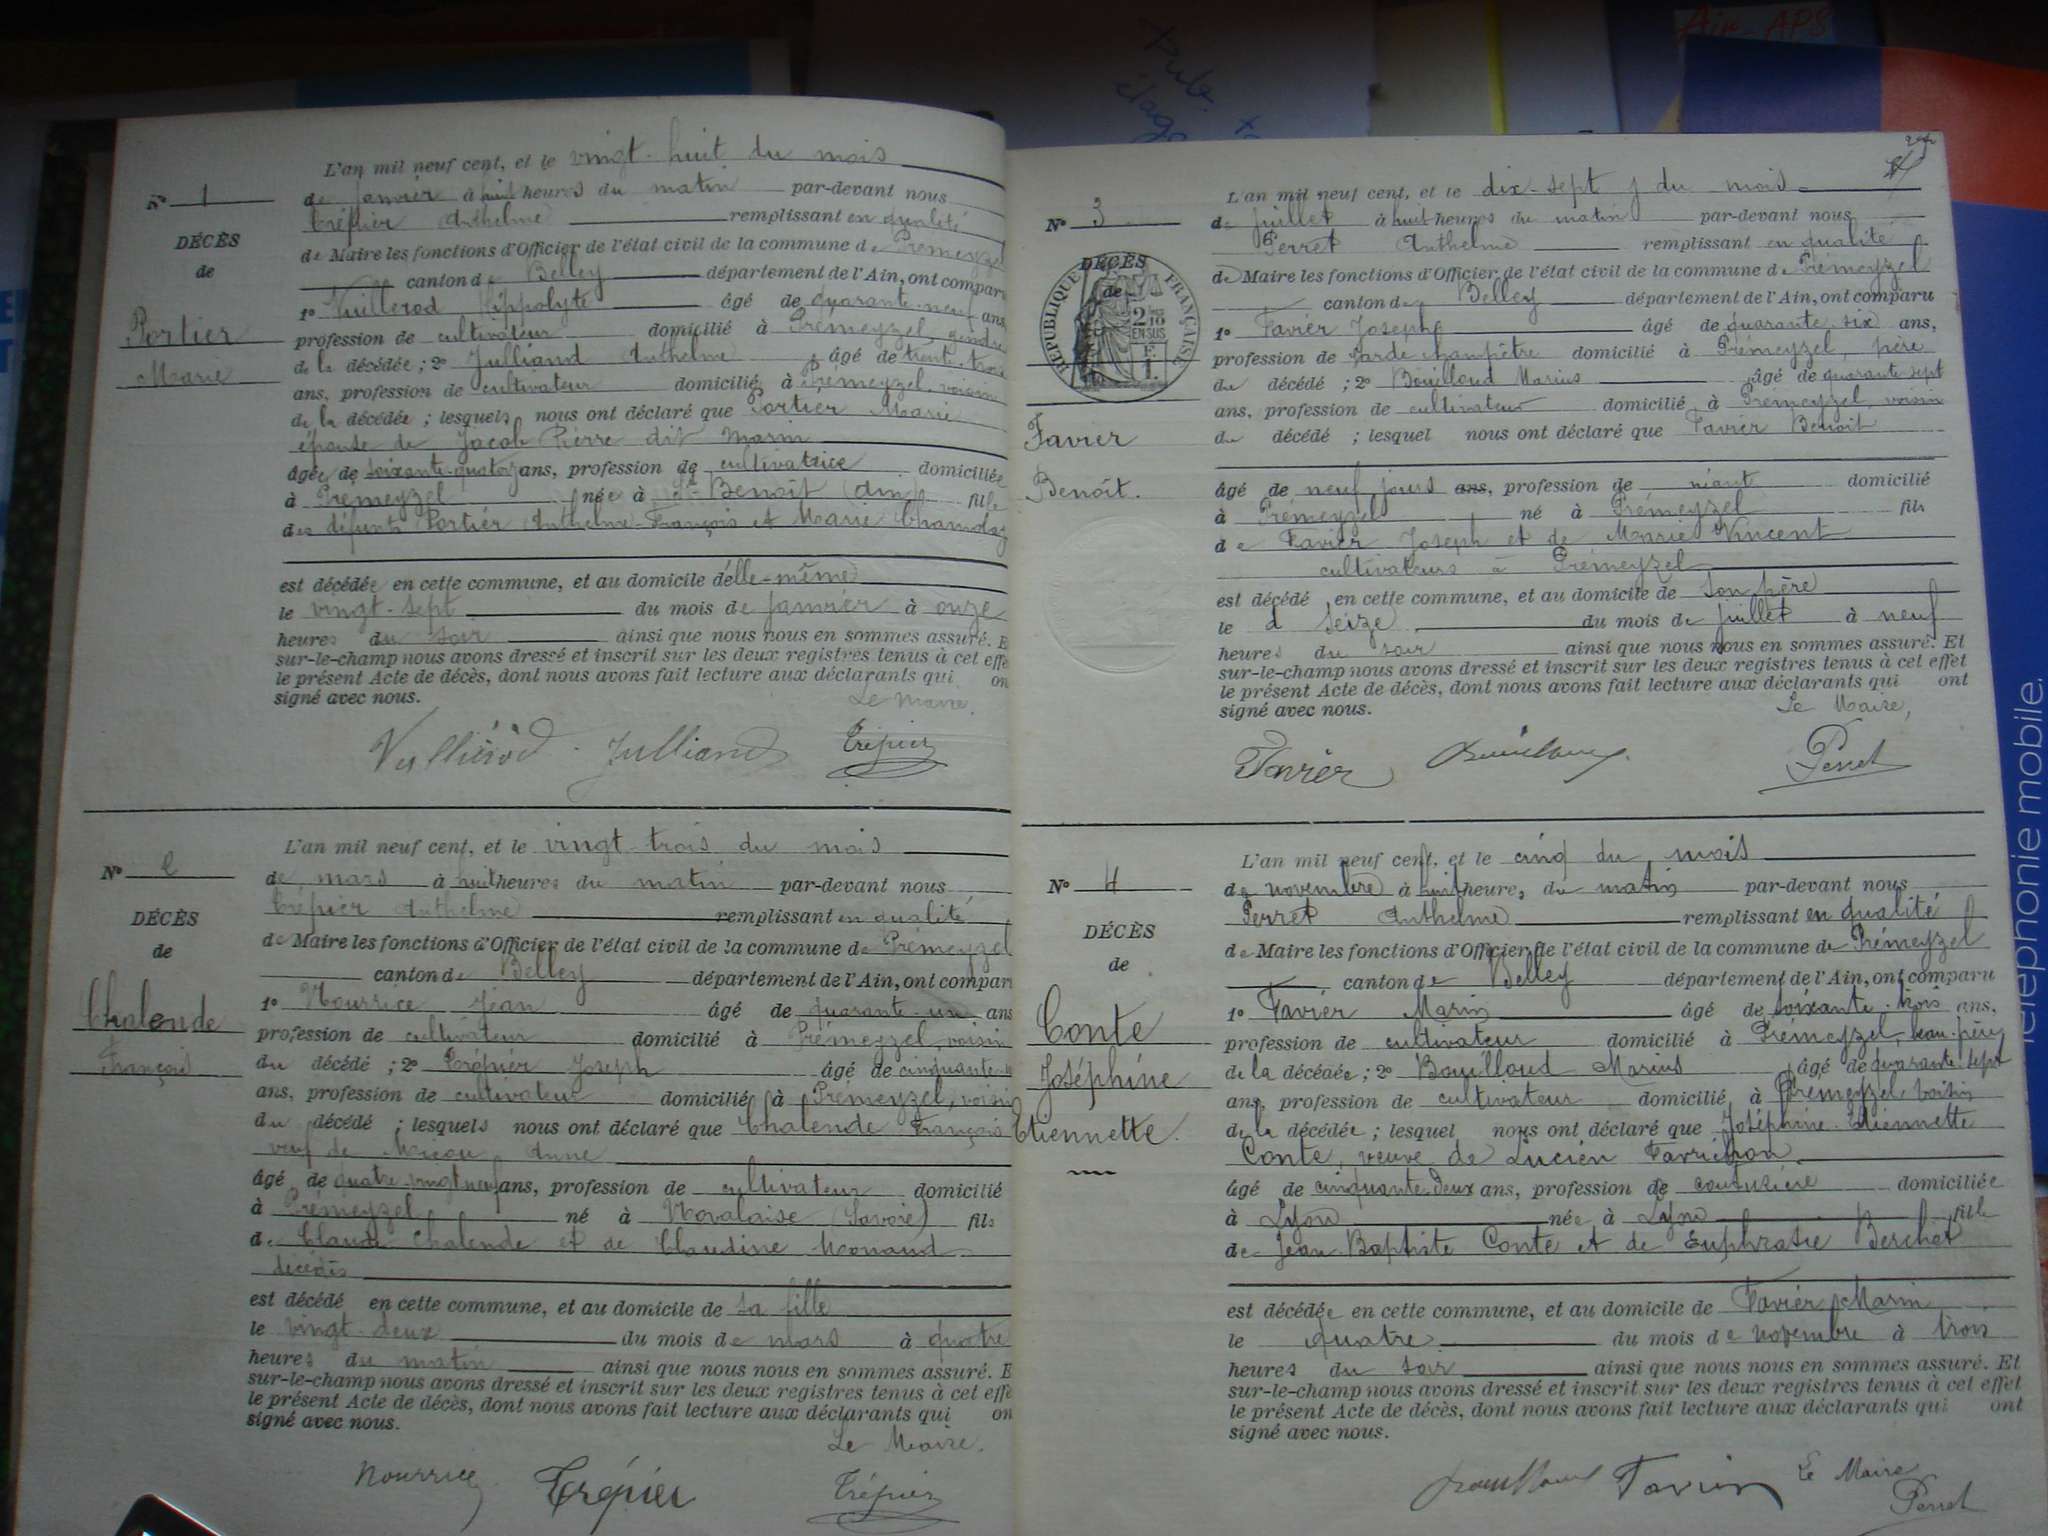 L'an mil neuf cent, et le vingt-huit du mois
N° 1
de janvier à huit heures du matin par-devant nous
Trépier Anthelme remplissant en qualité
DÉCÈS
de Maire les fonctions d'Officier de l'état civil de la commune de Prémeyzel
de
canton de Belley département de l'Ain, ont compar
1° Vuillerod Hippolyte âgé de quarante-neuf ans
Portier
profession de cultivateur domicilié à Prémeyzel, gendre
de la décédée ; 2° Julliand Anthelme âgé de trente-trois
Marie
ans, profession de cultivateur domicilié à Prémeyzel, voisin
de la décédée ; lesquels nous ont déclaré que Portier Marie
épouse de Jacob Pierre dit Marin
âgée de soixante-quatorze ans, profession de cultivatrice domiciliée
à Prémeyzel née à St Benoît (Ain) fille
des défunts Portier Anthelme-François et Marie
est décédée en cette commune, et au domicile d'elle-même
le vingt-sept du mois de janvier à onze
heures du soir ainsi que nous nous en sommes assuré. E
sur-le-champ nous avons dressé et inscrit sur les deux registres tenus à cet effe
le présent Acte de décès, dont nous avons fait lecture aux déclarants qui on
signé avec nous.
Le Maire,
Vulliérod Julliand Trépier
L'an mil neuf cent, et le vingt-trois du mois
N° 2
de mars à huit heures du matin par-devant nous
Trépier Anthelme remplissant en qualité
DÉCÈS
de Maire les fonctions d'Officier de l'état civil de la commune de Prémeyzel
de
canton de Belley département de l'Ain, ont compar
1° Nourrice Jean âgé de quarante-un ans
Chalende
profession de cultivateur domicilié à Prémeyzel, voisin
François
du décédé ; 2° Trépier Joseph âgé de cinquante
ans, profession de cultivateur domicilié à Prémeyzel, voisin
du décédé ; lesquels nous ont déclaré que Chalende François
veuf de Anne
âgé de quatre-vingt-neuf ans, profession de cultivateur domicilié
à Prémeyzel né à Novalaise (Savoie) fils
de Claude Chalende et de Claudine Monaud
décédés
est décédé en cette commune, et au domicile de sa fille
le vingt-deux du mois de mars à quatre
heures du matin ainsi que nous nous en sommes assuré. E
sur-le-champ nous avons dressé et inscrit sur les deux registres tenus à cet effe
le présent Acte de décès, dont nous avons fait lecture aux déclarants qui on
signé avec nous.
Le Maire,
Nourrice Trépier Trépier
L'an mil neuf cent, et le dix-sept du mois
N° 3
de juillet à huit heures du matin par-devant nous
Perret Anthelme remplissant en qualité
DÉCÈS
de
RÉPUBLIQUE FRANÇAISE
2/10 EN SUS
de Maire les fonctions d'Officier de l'état civil de la commune de Prémeyzel
canton de Belley département de l'Ain, ont comparu
1° Favier Joseph âgé de quarante-six ans,
profession de Garde champêtre domicilié à Prémeyzel, père
du décédé ; 2° Bouilloud Marius âgé de quarante-sept
ans, profession de cultivateur domicilié à Prémeyzel, voisin
Favier
du décédé ; lesquel nous ont déclaré que Favier Benoit
Benoît.
âgé de neuf jours ans, profession de néant domicilié
à Prémeyzel né à Prémeyzel fils
de Favier Joseph et de Marie Vincent
cultivateurs à Prémeyzel
est décédé en cette commune, et au domicile de son père
le seize du mois de juillet à neuf
heures du soir ainsi que nous nous en sommes assuré. Et
sur-le-champ nous avons dressé et inscrit sur les deux registres tenus à cet effet
le présent Acte de décès, dont nous avons fait lecture aux déclarants qui ont
signé avec nous.
Le Maire,
Favier Bouilloud Perret
L'an mil neuf cent, et le cinq du mois
N° 4
de novembre à huit heures du matin par-devant nous
Perret Anthelme remplissant en qualité
DÉCÈS
de Maire les fonctions d'Officier de l'état civil de la commune de Prémeyzel
de
canton de Belley département de l'Ain, ont comparu
1° Favier Marin âgé de soixante-trois ans,
Conte
profession de cultivateur domicilié à Prémeyzel, beau-père
Joséphine
de la décédée ; 2° Bouilloud Marius âgé de quarante-sept
ans, profession de cultivateur domicilié à Prémeyzel, voisin
Etiennette.
de la décédée ; lesquel nous ont déclaré que Joséphine-Etiennette
Conte, veuve de Lucien
âgé de cinquante-deux ans, profession de couturière domiciliée
à Lyon née à Lyon fille
de Jean-Baptiste Conte et de Euphrasie Berchet
est décédée en cette commune, et au domicile de Favier Marin
le quatre du mois de novembre à trois
heures du soir ainsi que nous nous en sommes assuré. Et
sur-le-champ nous avons dressé et inscrit sur les deux registres tenus à cet effet
le présent Acte de décès, dont nous avons fait lecture aux déclarants qui ont
signé avec nous.
Bouilloud Favier Le Maire
Perret
téléphonie mobile.